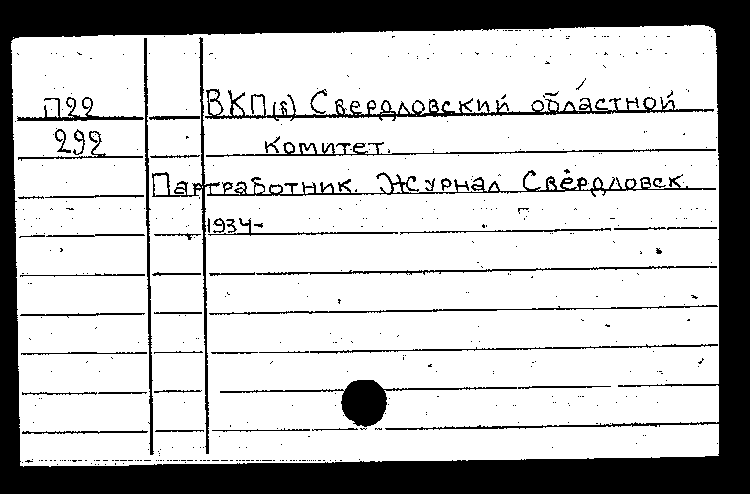 П22
292
ВКП(б) Свердловский областной
комитет.
Партработник. Журнал Свердловск.
1934-